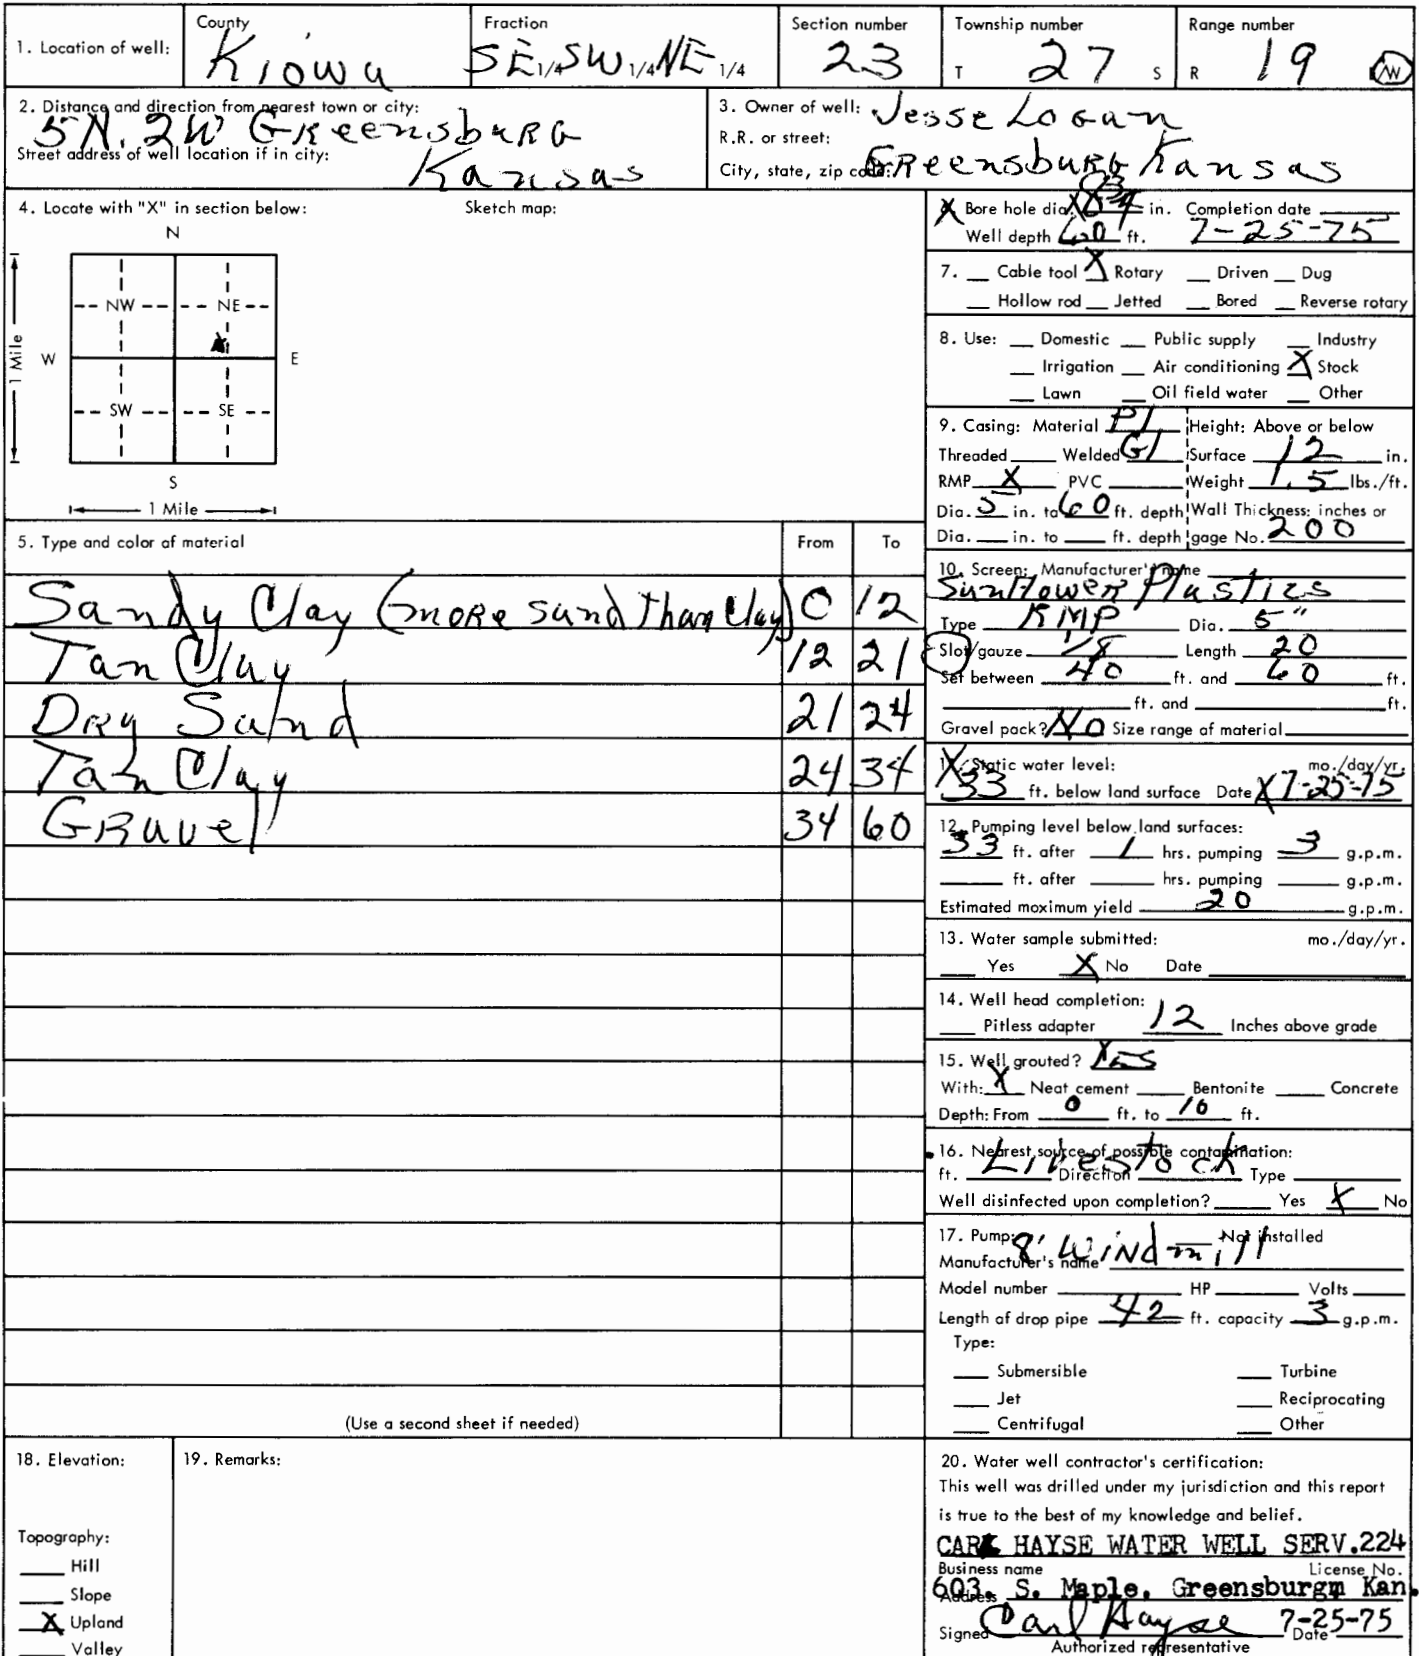 1. Location of well: County Kiowa Fraction SE 1/4 SW 1/4 NE 1/4 Section number 23 Township number T 27 S Range number R 19 W
2. Distance and direction from nearest town or city:
5N. 2W Greensburg
Street address of well location if in city:
Kansas
3. Owner of well: Jesse Logan
R.R. or street:
City, state, zip code: Greensburg Kansas
4. Locate with "X" in section below: Sketch map:
N
NW NE
W E
SW SE
S
1 Mile
1 Mile
5. Type and color of material From To
Sandy Clay (more sand than Clay) 0 12
Tan Clay 12 21
Dry Sand 21 24
Tan Clay 24 34
Gravel 34 60
(Use a second sheet if needed)
X Bore hole dia. in. Completion date
Well depth 60 ft. 7-25-75
7. Cable tool X Rotary Driven Dug
Hollow rod Jetted Bored Reverse rotary
8. Use: Domestic Public supply Industry
Irrigation Air conditioning X Stock
Lawn Oil field water Other
9. Casing: Material Pl Height: Above or below
Threaded Welded Gl Surface 12 in.
RMP X PVC Weight 1.5 lbs./ft.
Dia. 5 in. to 60 ft. depth Wall Thickness: inches or
Dia. in. to ft. depth gage No. 200
10. Screen: Manufacturer's name
Sunflower Plastics
Type RMP Dia. 5"
Slot/gauze 1/8 Length 20
Set between 40 ft. and 60 ft.
ft. and ft.
Gravel pack? No Size range of material
11. Static water level: mo./day/yr.
33 ft. below land surface Date X 7-25-75
12. Pumping level below land surfaces:
33 ft. after 1 hrs. pumping 3 g.p.m.
ft. after hrs. pumping g.p.m.
Estimated moximum yield 20 g.p.m.
13. Water sample submitted: mo./day/yr.
Yes X No Date
14. Well head completion:
Pitless adapter 12 Inches above grade
15. Well grouted? Yes
With: X Neat cement Bentonite Concrete
Depth: From 0 ft. to 10 ft.
16. Nearest source of possible contamination:
ft. Livestock Direction Type
Well disinfected upon completion? Yes X No
17. Pump: Not installed
Manufacturer's name 8' Windmill
Model number HP Volts
Length of drop pipe 42 ft. capacity 3 g.p.m.
Type:
Submersible Turbine
Jet Reciprocating
Centrifugal Other
18. Elevation:
Topography:
Hill
Slope
X Upland
Valley
19. Remarks:
20. Water well contractor's certification:
This well was drilled under my jurisdiction and this report
is true to the best of my knowledge and belief.
CARL HAYSE WATER WELL SERV. 224
Business name License No.
603. S. Maple. Greensburgm Kan.
Address
Signed Carl Hayse 7-25-75 Date
Authorized representative